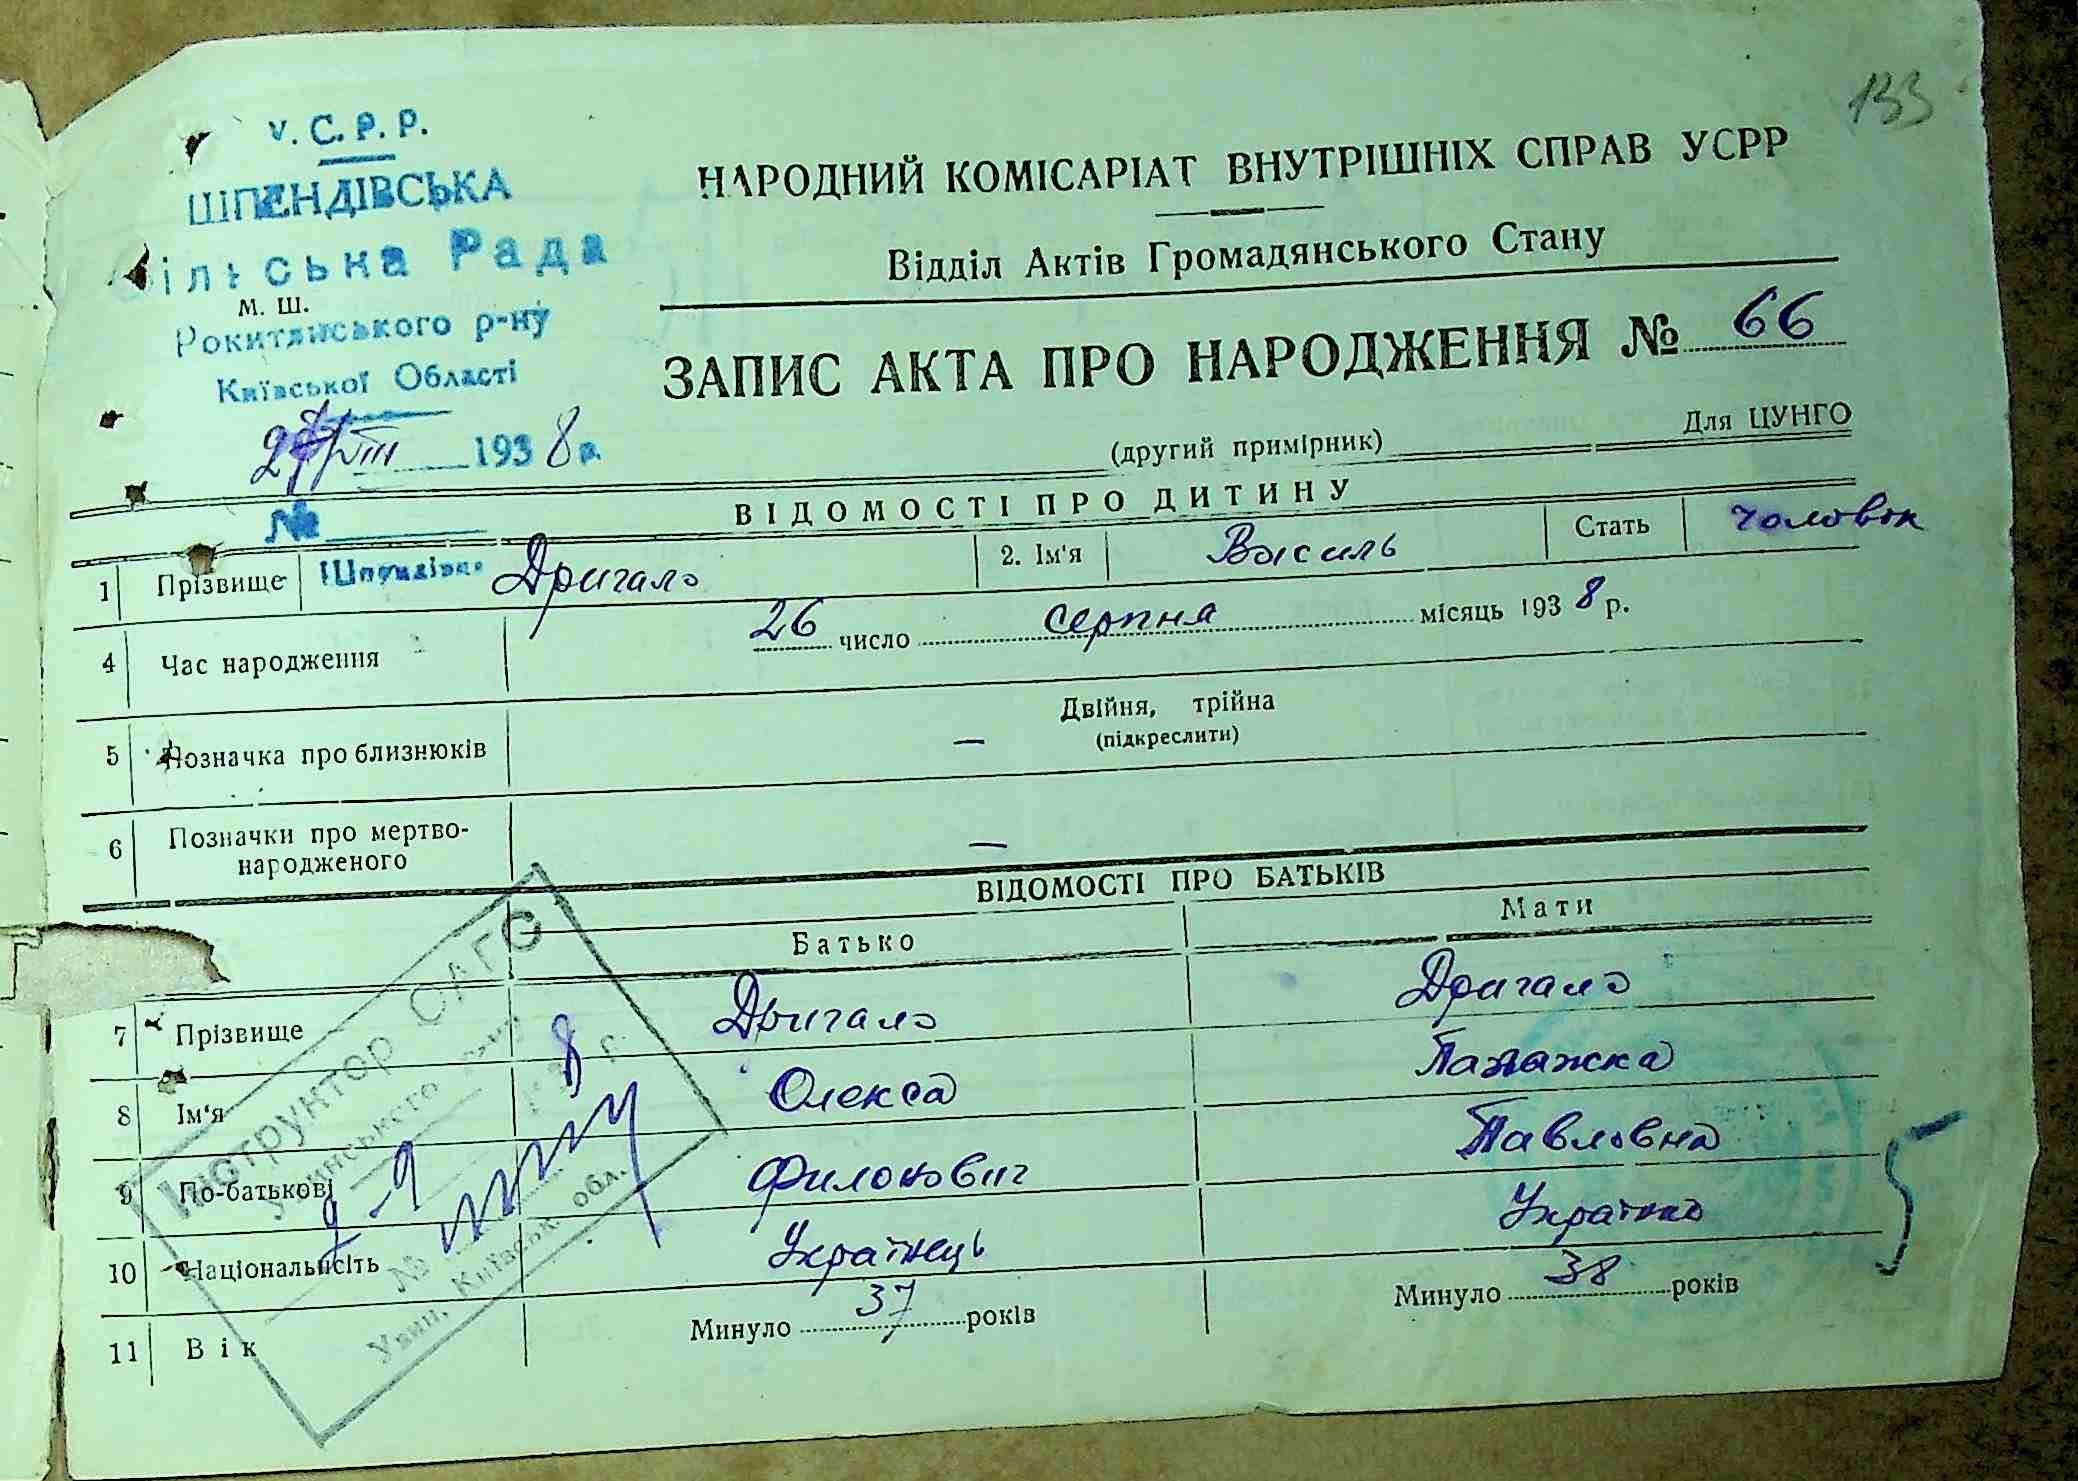 133
У. С. Р. Р.
ШПЕНДІВСЬКА
Сільська Рада
М. Ш.
Рокитянського р-ну
Київської Області
27/VIII 1938 р.
№
Шпендівка
НАРОДНИЙ КОМІСАРІАТ ВНУТРІШНІХ СПРАВ УСРР
Відділ Актів Громадянського Стану
ЗАПИС АКТА ПРО НАРОДЖЕННЯ № 66
(другий примірник) Для ЦУНГО
ВІДОМОСТІ ПРО ДИТИНУ
1 Прізвище Дригало 2. Ім'я Василь Стать чоловік
4 Час народження 26 число серпня місяць 1938 р.
5 Позначка про близнюків — Двійня, трійна
(підкреслити)
6 Позначки про мертво-
народженого —
ВІДОМОСТІ ПРО БАТЬКІВ
Батько Мати
7 Прізвище Дригало Дригало
8 Ім'я Олекса
9 По-батькові Филонович Павловна
10 Національність Українець Українка
11 Вік Минуло 37 років Минуло 38 років
Інструктор ОАГС
8 р.
№
Київськ. обл.
5